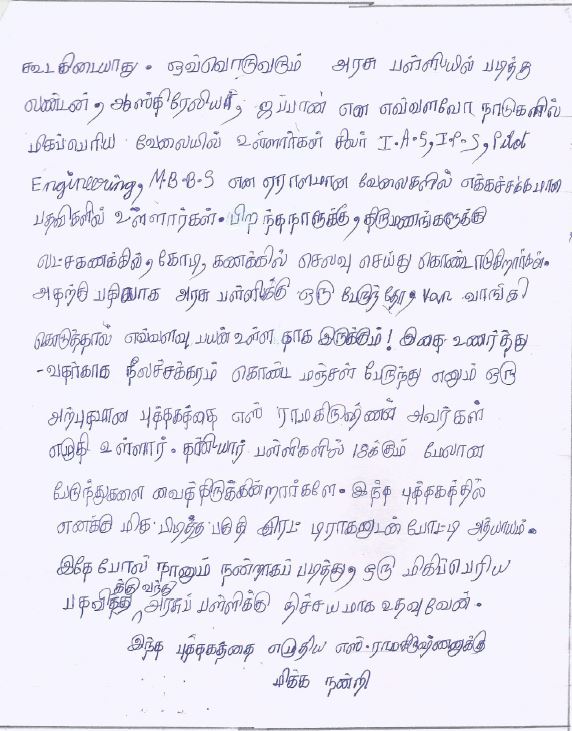 கூட கிடையாது. ஒவ்வொருவரும் அரசு பள்ளியில் படித்து
லண்டன், ஆஸ்திரேலியா, ஜப்பான் என எவ்வளவோ நாடுகளில்
மிகப்பெரிய வேலையில் உள்ளார்கள் சிலர் I.A.S, I.P.S, Pilot
Engineering, M.B.B.S என ஏராளமான வேலைகளில் எக்கச்சக்கமான
பதவிகளில் உள்ளார்கள். பிறந்தநாளுக்கு, திருமணங்களுக்கு
லட்சகணக்கில், கோடி, கணக்கில் செலவு செய்து கொண்டாடுகிறார்கள்.
அதற்கு பதிலாக அரசு பள்ளிக்கு ஒரு பேருந்தோ, van வாங்கி
கொடுத்தால் எவ்வளவு பயன் உள்ள தாக இருக்கும்! இதை உணர்த்து
-வதற்காக நீலச்சக்கரம் கொண்ட மஞ்சள் பேருந்து எனும் ஒரு
அற்புதமான புத்தகத்தை எஸ் ராமகிருஷ்ணன் அவர்கள்
எழுதி உள்ளார். தனியார் பள்ளிகளில் 18க்கும் மேலான
பேருந்துகளை வைத்திருக்கின்றார்களே. இந்த புத்தகத்தில்
எனக்கு மிக பிடித்த பகுதி இரட் டிராகனுடன் போட்டி அத்யாயம்.
இதே போல் நானும் நன்றாகப் படித்து, ஒரு மிகப்பெரிய
பதவிக்கு வந்து அரசுப் பள்ளிக்கு நிச்சயமாக உதவுவேன்.
இந்த புத்தகத்தை எழுதிய எஸ்.ராமகிருஷ்ணனுக்கு
மிக்க நன்றி